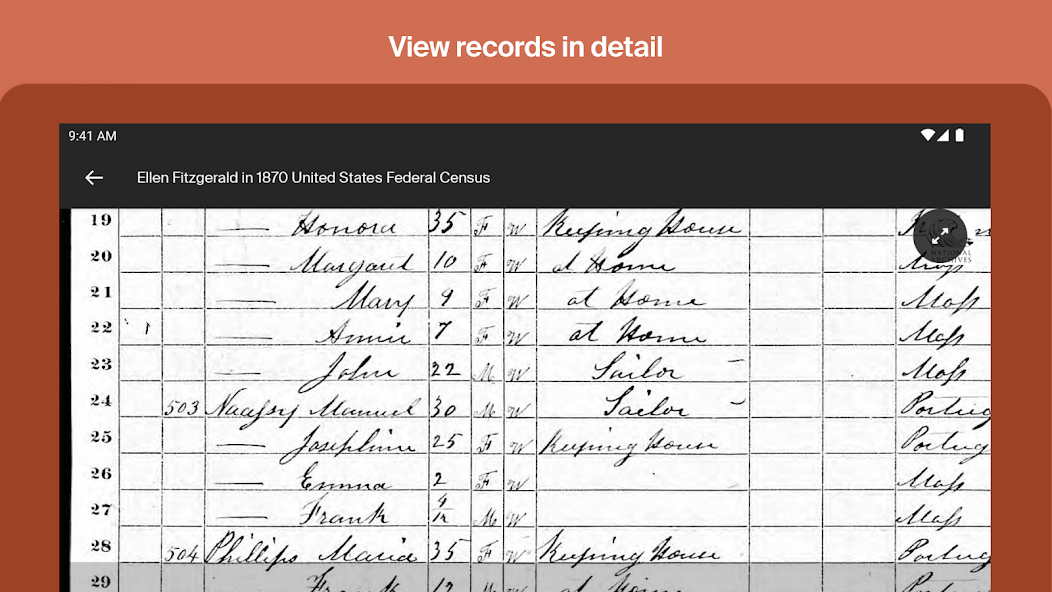 View records in detail
9:41 AM
Ellen Fitzgerald in 1870 United States Federal Census
19 Honora 35 F W Keeping House
NATIONAL ARCHIVES
20 Margaret 10 F W at Home Mass
21 Mary 9 F W at Home Mass
22 Annie 7 F W at Home Mass
23 John 22 M W Sailor Mass
24 503 Manuel 30 M W Sailor Portug
25 Josephine 25 F W Keeping House Portug
26 Emma 2 F W Mass
27 Frank M W Mass
28 504 Phillips Maria 35 F W Keeping House Portug
29 Frank 12 M W at Home